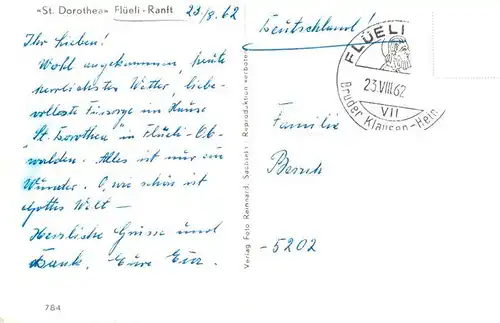 «St. Dorothea» Flüeli - Ranft 23/8. 62
Ihr Lieben!
Wohl angekommen, heute
herrlichstes Wetter, liebe-
vollste Fürsorge im Hause
"St. Dorothea" in Flüeli-Ob-
walden. Alles ist nur ein
Wunder. O, wie schön ist
Gottes Welt –
Herzliche Grüsse und
Dank. Eure
784
Verlag Foto Reinhard, Sachseln · Reproduktion verboten
Deutschland!
FLÜELI
23.VIII.62
VII
Bruder Klausen-Heim
Familie
-5202